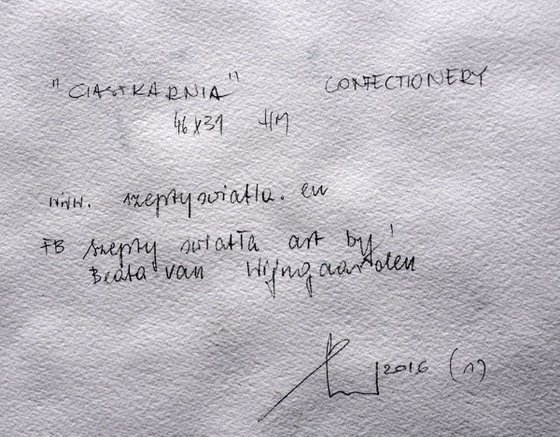 "CIASTKARNIA" CONFECTIONERY
46x31 HM
www. szeptyswiatla. eu
FB szepty swiatła art by
Beata van Wijngaarden
2016 (1)